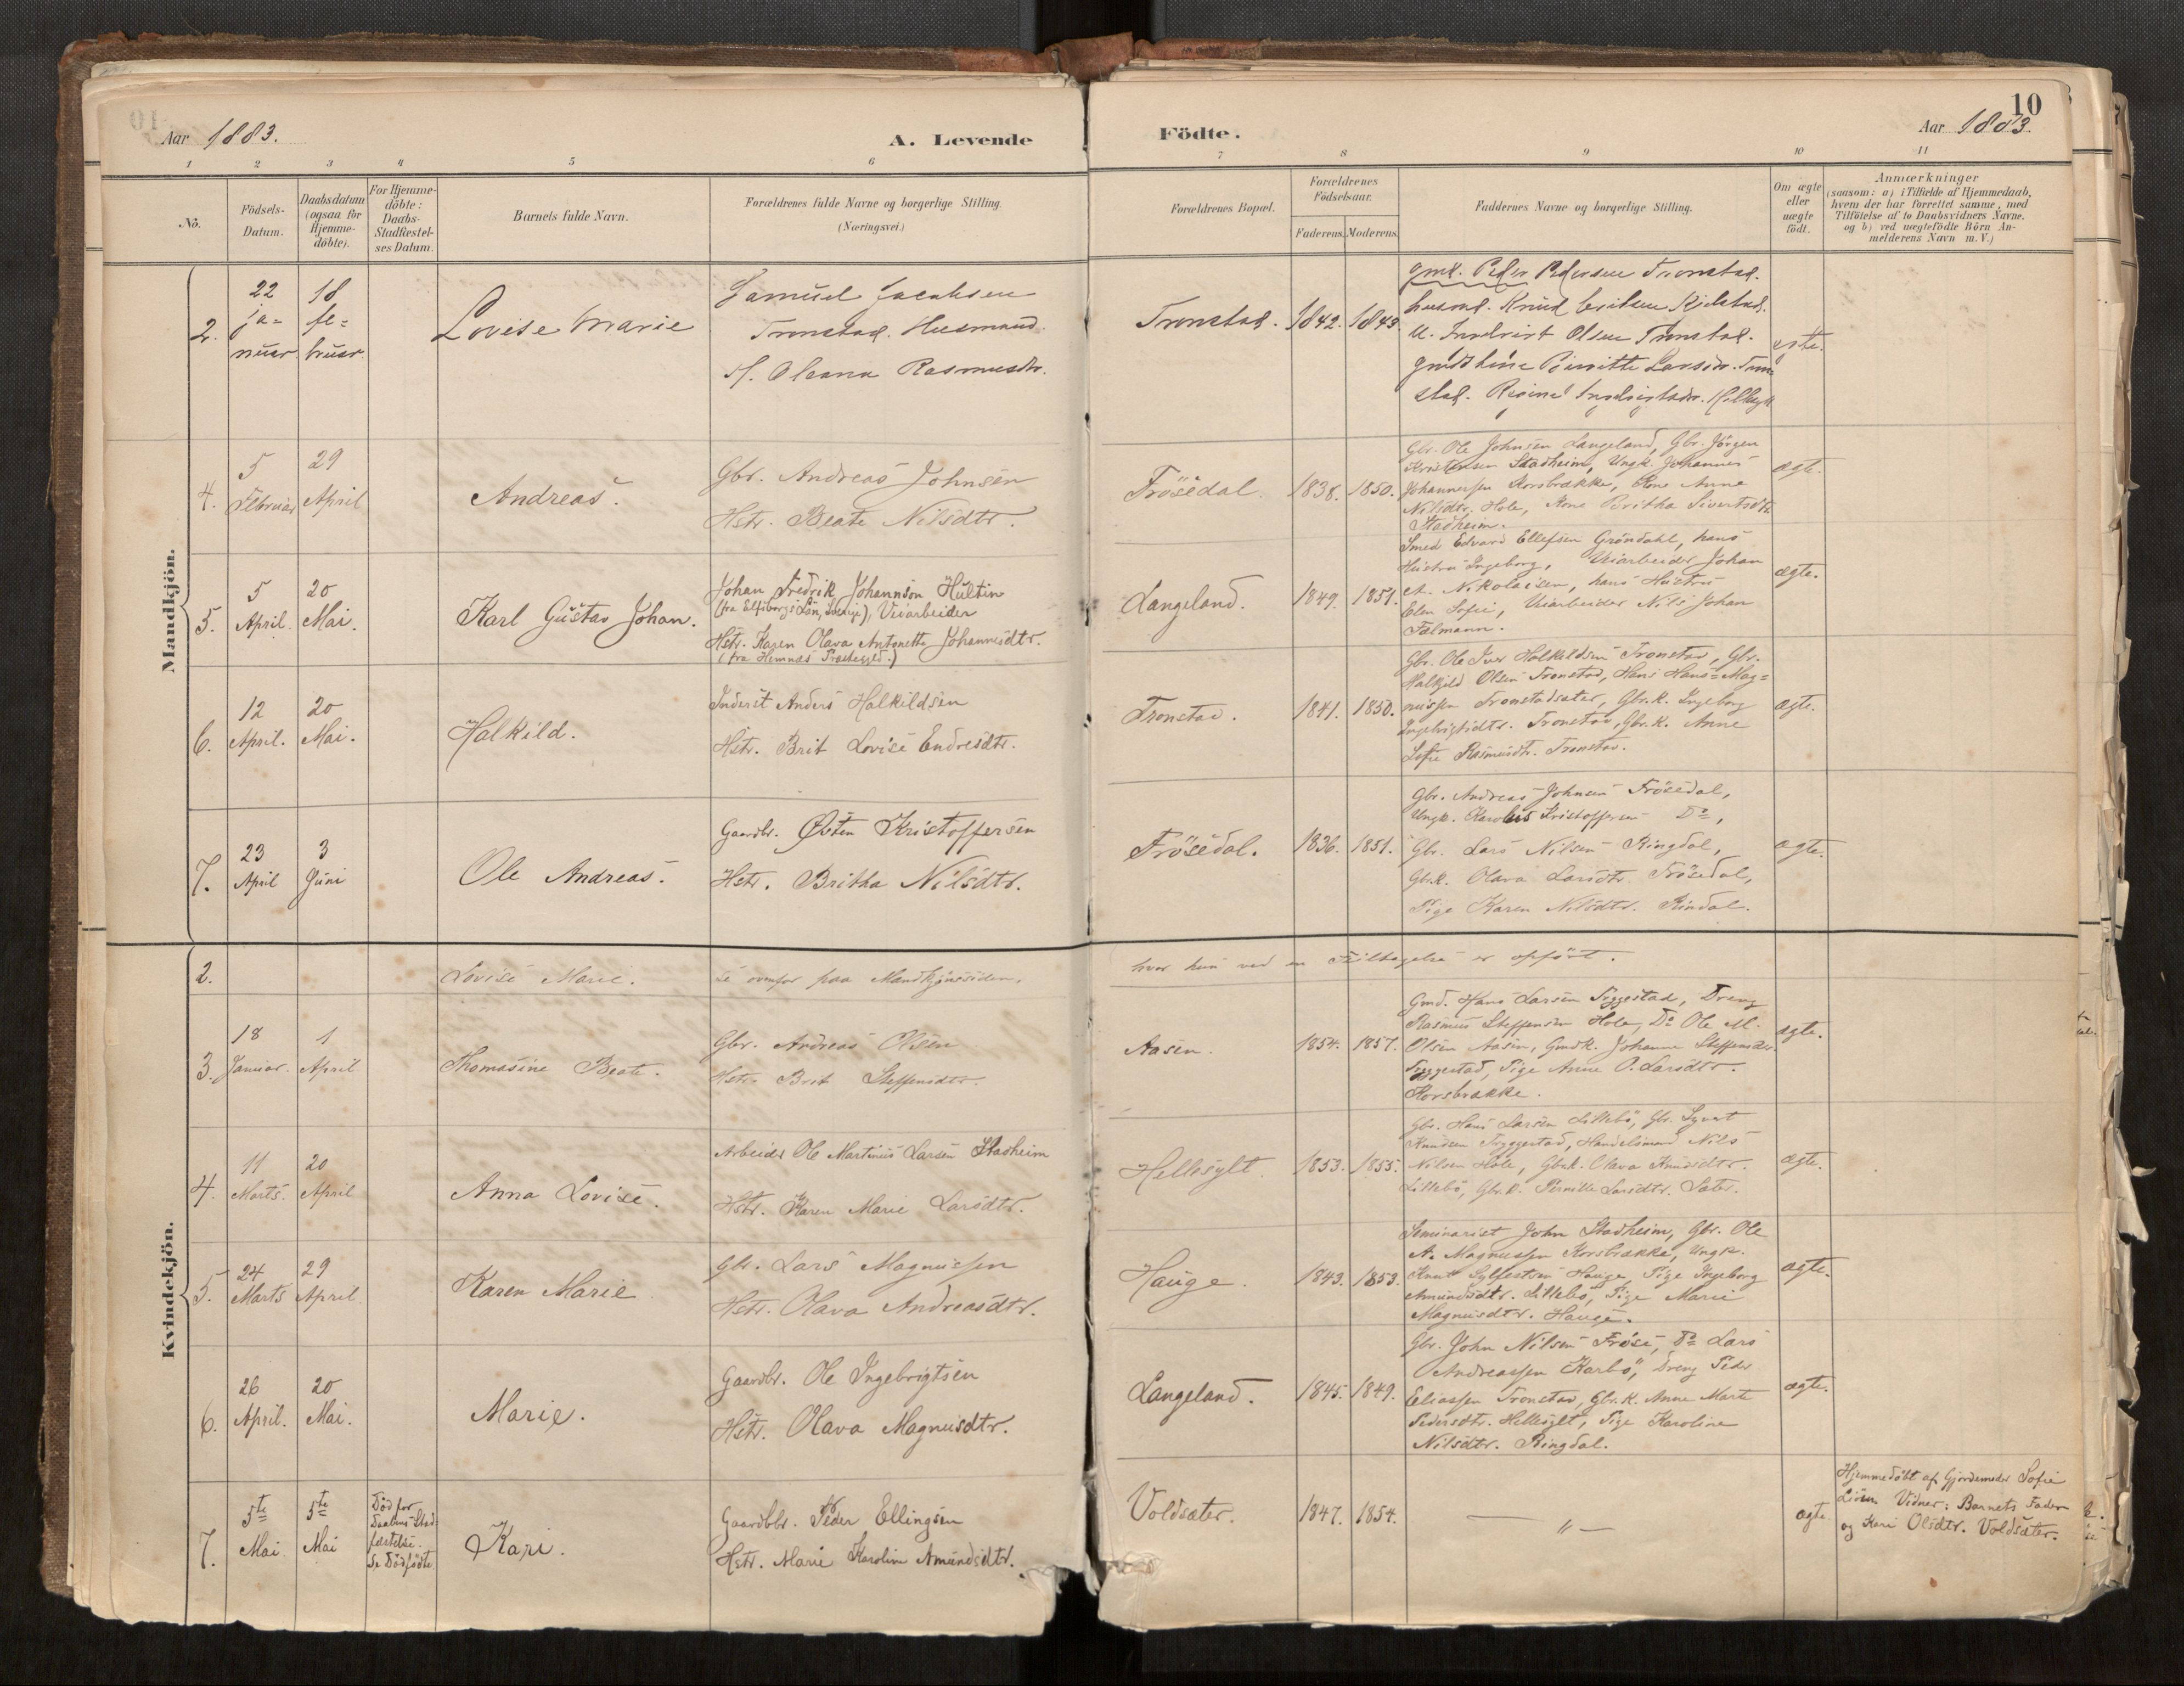 10
Aar 1883.
A. Levende
Födte.
Aar 1883.
1 2 3 4 5 6 7 8 9 10 11
No.
Födsels-
Datum.
Daabsdatum
(ogsaa for
Hjemme-
döbte).
For Hjemme-
döbte:
Daabs-
Stadfestel-
ses Datum.
Barnets fulde Navn.
Forældrenes fulde Navne og borgerlige Stilling.
(Næringsvei.)
Forældrenes Bopæl.
Forældrenes
Födselsaar.
Faderens. Moderens.
Faddernes Navne og borgerlige Stilling.
Om ægte
eller
uægte
födt.
Anmærkninger
(saasom: a) i Tilfælde af Hjemmedaab,
hvem der har forrettet samme, med
Tilföielse af to Daabsvidners Navne.
og b) ved uægtefödte Börn An-
melderens Navn m. V.)
Mandkjön.
2.
22
ja=
nuar.
18
fe=
bruar.
Lovise Marie
Samuel Jacobsen
Tronstad. Husmand
H. Oleana Rasmusdtr.
Tronstad. 1842. 1843.
gmd. Peder Pedersen Tronstad.
husmd. Knud
Olsen Tronstad.
ægte.
4.
5
Februar
29
April
Andreas.
Gbr. Andreas Johnsen
Hstr. Beate Nilsdtr.
Frösedal. 1838. 1850.
Gbr. Ole Johnsen Langeland, Gbr. Jörgen
Kristensen Stadheim, Ungk. Johannes
Johannessen Korsbrække, Kone Anne
Nilsdtr. Hole, Kone Britha Sivertsdtr.
Stadheim.
ægte.
5.
5
April.
20
Mai.
Karl Gustav Johan.
Johan Fredrik Johannson Hultin
(fra Elfsborgs Län, Sverige), Veiarbeider
Hstr. Karen Olava Antonette Johannesdtr.
(fra Hemnæs Præstegjeld.)
Langeland. 1849. 1851.
Smed Edvard Ellefsen Gröndahl, hans
Hustru Ingeborg, Veiarbeider Johan
A. Nikolaisen, hans Hustru
Elen Sofie, Veiarbeider Nils Johan
Talmann.
ægte.
6.
12
April.
20
Mai.
Halkild.
Inderst Anders Halkildsen
Hstr. Brit Lovise Endresdtr.
Tronstad. 1841. 1850.
Gbr. Ole Iver Halkildsen Tronstad, Gbr.
Halkjeld Olsen Tronstad, Hans Hans=Mag=
nussen Tronstadsæter, Gbr.k. Ingeborg
Ingebrigtsdtr. Tronstad, Gbr.k. Anne
Sofie Rasmusdtr. Tronstad.
ægte.
7.
23
April
3
Juni
Ole Andreas.
Gaardbr. Østen Kristoffersen
Hstr. Britha Nilsdtr.
Frösedal. 1836. 1851.
Gbr. Andreas Johnsen Frösedal,
Ungk. Karolus Kristoffersen Do,
Gbr. Lars Nilsen Ringdal,
Gbr.k. Olava Larsdtr. Frösedal,
Pige Karen Nilsdtr. Rindal.
ægte.
Kvindekjön.
2.
Lovise Marie.
Se ovenfor paa Mandkjönssiden,
hvor hun ved en Feiltagelse er opfört.
3.
18
Januar.
1
April
Thomasine Beate.
Gbr. Andreas Olsen
Hstr. Brit Steffensdtr.
Aasen. 1854. 1857.
Gmd. Hans Larsen Tryggestad, Dreng
Rasmus Steffensen Hole, Do Ole M.
Olsen Aasen, Gmdk. Johanne Steffensdtr.
Tryggestad, Pige Anne O. Larsdtr.
Korsbrække.
ægte.
4.
11
Marts.
20
April
Anna Lovise.
Arbeider Ole Martinus Larsen Stadheim
Hstr. Karen Marie Larsdtr.
Hellesylt. 1853. 1855.
Gbr. Hans Larsen Lillebö, Gbr. Syvert
Knudsen Tryggestad, Handelsmand Nils
Nilsen Hole, Gbr.k. Olava Knudsdtr.
Lillebö, Gbr.k. Pernille Larsdtr. Sæter.
ægte.
5.
24
Marts
29
April
Karen Marie.
Gbr. Lars Magnussen
Hstr. Olava Andreasdtr.
Hauge. 1843. 1853.
Seminarist John Stadheim, Gbr. Ole
A. Magnussen Korsbrække, Ungk.
Knut Sylfestsen Hauge, Pige Ingeborg
Amundsdtr. Lillebö, Pige Marie
Magnusdtr. Hauge.
ægte.
6.
26
April.
20
Mai.
Marie.
Gaardbr. Ole Ingebrigtsen
Hstr. Olava Magnusdtr.
Langeland. 1845. 1849.
Gbr. John Nilsen Fröse, Do Lars
Andreassen Karbö, Dreng Peder
Eliassen Tronstad, Gbr.k. Anne Marte
Pedersdtr. Hellesylt, Pige Karoline
Nilsdtr. Ringdal.
ægte.
7.
5te
Mai
5te
Mai
Död for
Daabens Stad
fæstelse.
Se Dödfödte
Kari.
Gaardbr. Peder Ellingsen
Hstr. Marie Karoline Amundsdtr.
Voldsæter. 1847. 1854.
— " —
ægte.
Hjemmedöbt af Gjordemoder Sofie
Vidner: Barnets Fader
og Kari Olsdtr. Voldsæter.